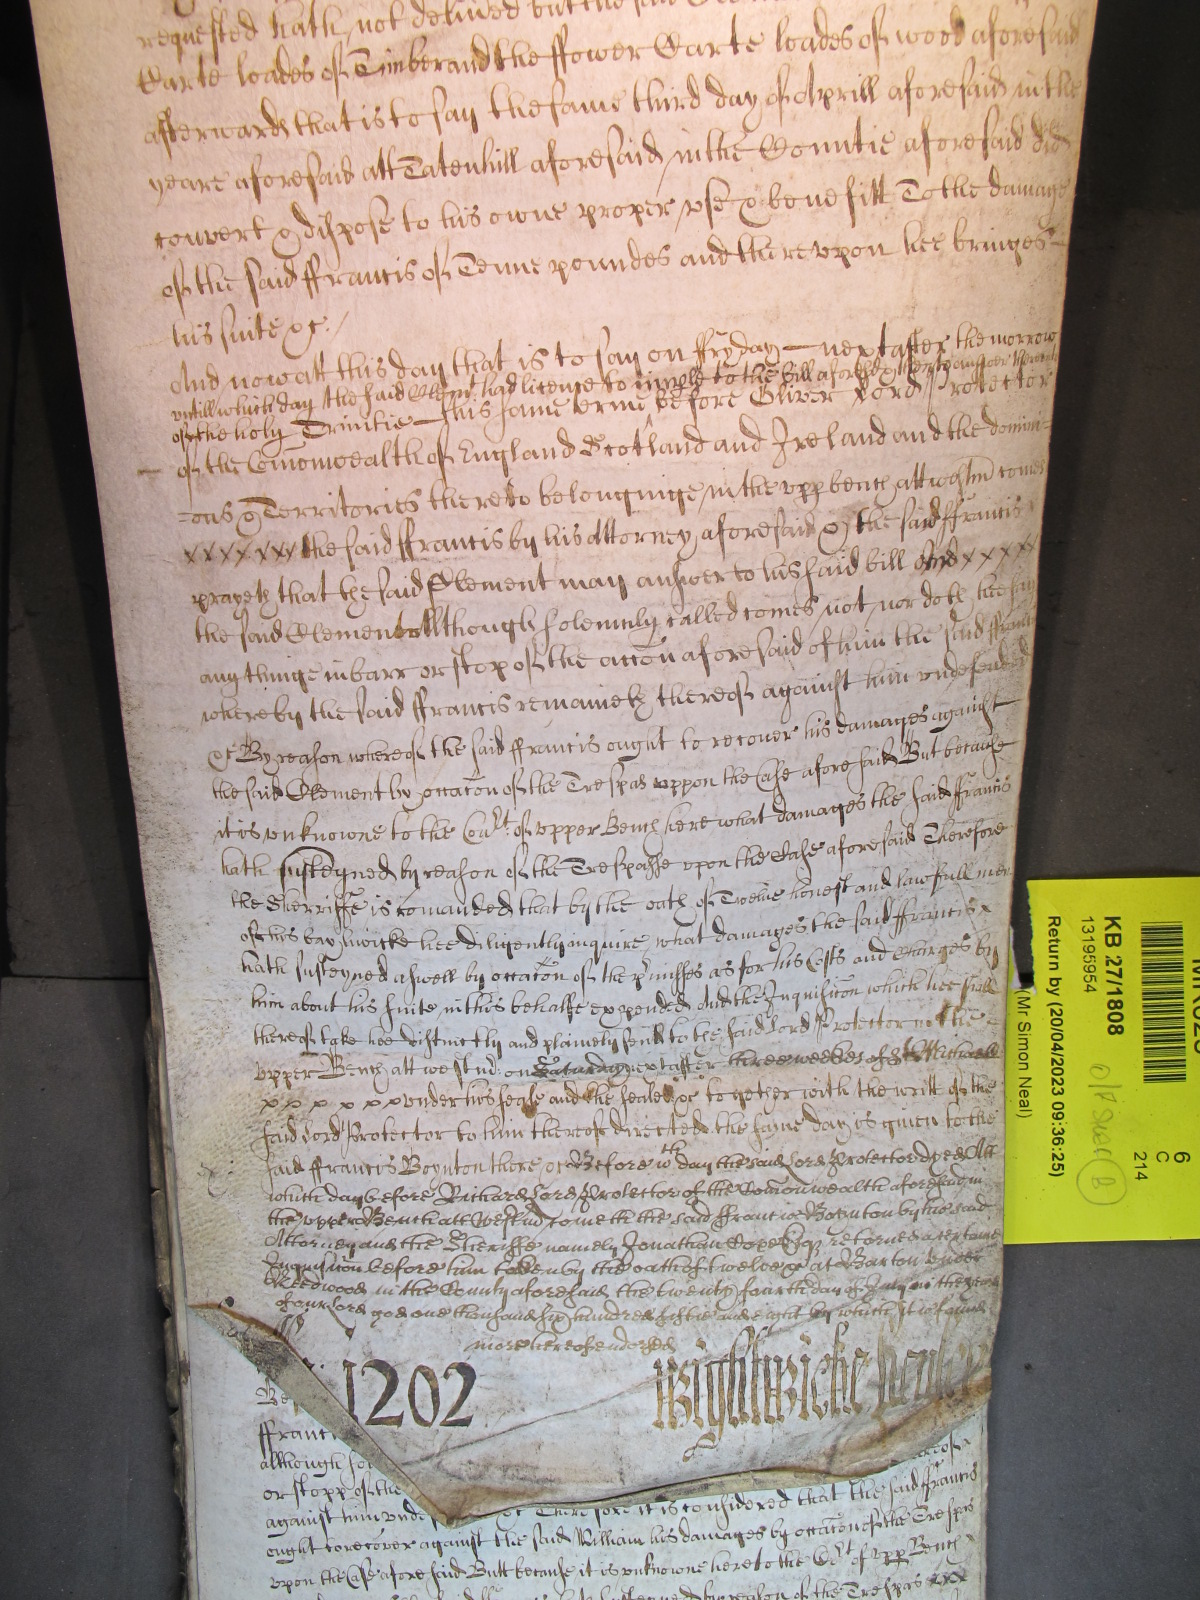 requested hath not delived but the said
Carte loades of Timber and the ffower Carte loades of wood aforesaid
afterwards that is to say the same third day of Aprill aforesaid in the
yeare aforesaid att Tatenhill aforesaid in the Countie aforesaid did
convert & dispose to his owne proper use & benefitt To the damage
of the said ffrancis of Tenne poundes and thereupon hee bringes
his suite &c.
And now att this day that is to say on ffryday next after the morrow
untill which day the said Clemt had licence to imple to the bill aforesd & then to answer
of the holy Trinitie this same terme before Oliver Lord Protector
of the Comonwealth of England Scotland and Ireland and the domini
=ons & Territories thereto belonginge in the upp bench att westm comes
xxxxxxx the said ffrancis by his Attorney aforesaid & the said ffrancis
prayeth that the said Clement may answer to his said bill And xxxxx
the said Clement Allthough solemnly called comes not nor doth hee say
any thinge in barr or stop of the accon aforesaid of him the said ffrancis
whereby the said ffrancis remaineth thereof against him undefended
&c By reason whereof the said ffrancis ought to recover his damages against
the said Clement by occacon of the Trespas uppon the Case aforesaid But because
it is unknowne to the Court of upper Bench here what damages the said ffrancis
hath susteyned by reason of the Trespasse upon the Case aforesaid Therefore
the Sherriffe is comanded that by the oath of Twelve honest and lawfull men
of his baylywicke hee diligently inquire what damages the said ffrancis x
hath susteyned aswell by occacon of the pmisses as for his Costs and Charges by
him about his suite in this behalfe expended And the Inquisicon which hee shall
thereof take hee distinctly and plainely send to the said Lord Protector in the
upper Bench att westmr on Saturday next after three weekes of St Michaell
x x x x x x under his seale and the seales &c together with the writt of the
said Lord Protector to him thereof directed the same day is given to the
said ffrancis Boynton there &c Before wth day the said Lord Protector dyed Att
which day before Richard Lord Protector of the Comonwealth aforesaid in
the upper Bench att Westmr cometh the said ffrancis Boynton by his said
Attorney and the Sherriffe namely Jonathan Cope Esqr retornes a certaine
Inquisicon before him taken by the oath of twelve &c at Barton under
Needwood in the County aforesaid the twenty fourth day of July in the yeare
of our Lord god one thousand six hundred fiftie and eight by which it is found
more hereof endorsed
1202
Wightwicke
ffranc
although so
or stopp of the
against him unde &c Therefore it is considered that the said ffrancis
ought to recover against the said William his damages by occacon of the Trespas
upon the Case aforesaid Butt because it is unknowne here to the Crt of upp Bench
by reason of the Trespas xxx
KB 27/1808
13195954
Return by (20/04/2023 09:36:25)
(Mr Simon Neal)
6
C
214
B